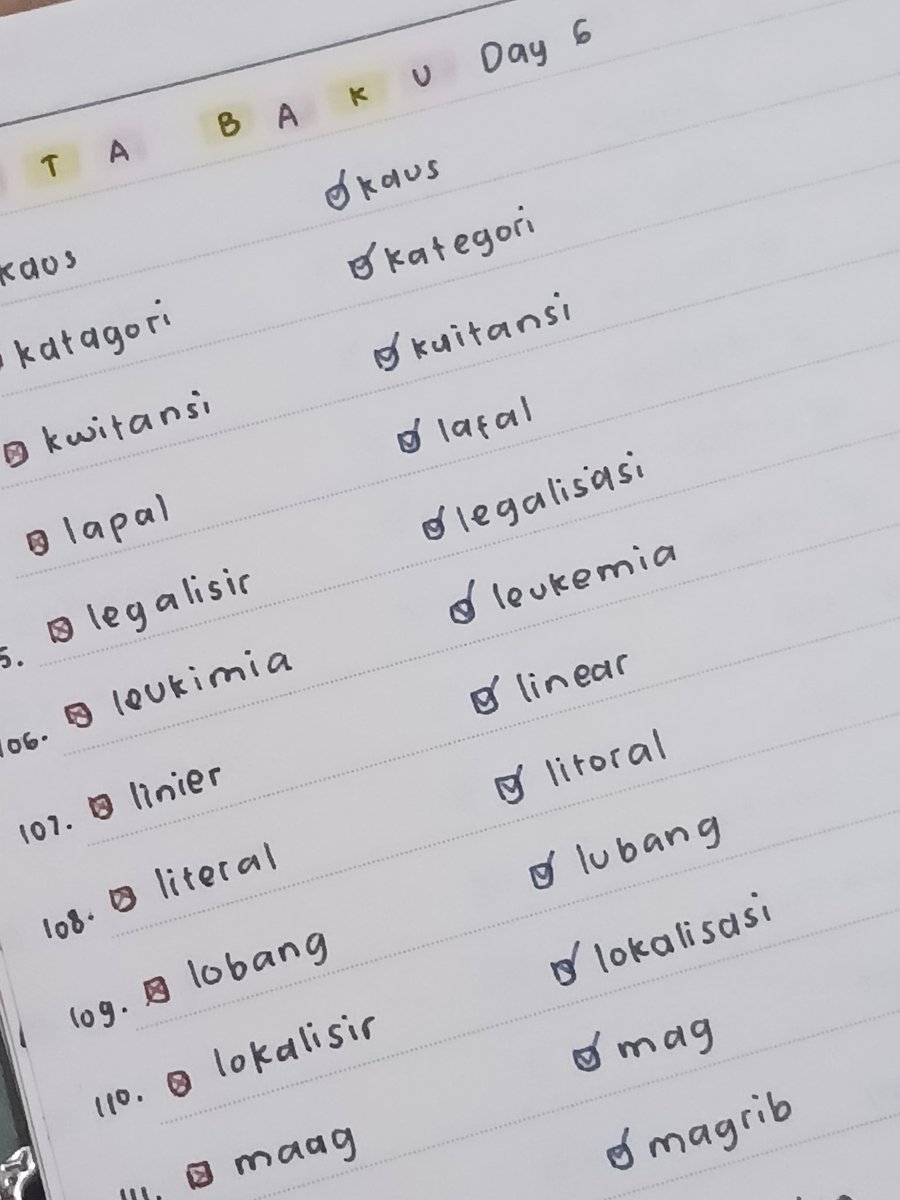 T A B A K U Day 6
kaos kaus
katagori kategori
kwitansi kuitansi
lapal lafal
5. legalisir legalisasi
106. leukimia leukemia
107. linier linear
108. literal litoral
109. lobang lubang
110. lokalisir lokalisasi
111. maag mag
magrib